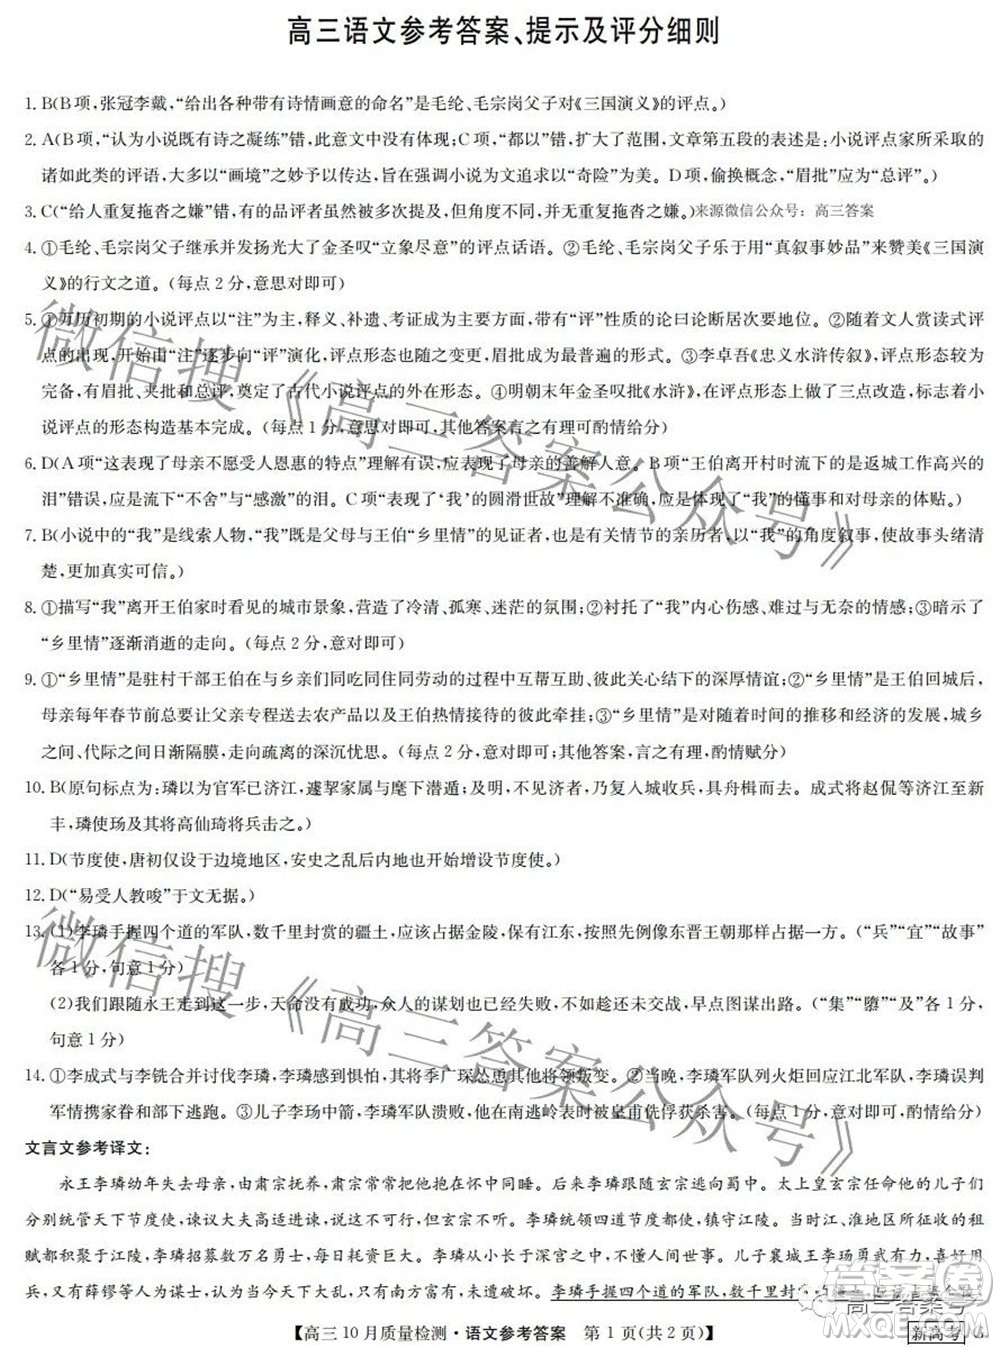 高三语文参考答案、提示及评分细则
1. B(B项,张冠李戴,“给出各种带有诗情画意的命名”是毛纶、毛宗岗父子对《三国演义》的评点。)
2. A(B项,“认为小说既有诗之凝练”错,此意文中没有体现;C项,“都以”错,扩大了范围,文章第五段的表述是:小说评点家所采取的
诸如此类的评语,大多以“画境”之奇妙予以传达,旨在强调小说为文追求以“奇险”为美。D项,偷换概念,“眉批”应为“总评”。)
3. C(“给人重复拖沓之嫌”错,有的品评者虽然被多次提及,但角度不同,并无重复拖沓之嫌。)来源微信公众号：高三答案
4. ①毛纶、毛宗岗父子继承并发扬光大了金圣叹“立象尽意”的评点话语。②毛纶、毛宗岗父子乐于用“真叙事妙品”来赞美《三国演
义》的行文之道。(每点2分,意思对即可)
5. ①万历初期的小说评点以“注”为主,释义、补遗、考证成为主要方面,带有“评”性质的论曰论断居次要地位。②随着文人赏读式评
点的出现,开始由“注”逐步向“评”演化,评点形态也随之受到影响,眉批成为最普遍的形式。③李卓吾《忠义水浒传叙》,评点形态较为
完备,有眉批、夹批和总评,奠定了古代小说评点的外在形态。④明朝末年金圣叹批《水浒》,在评点形态上做了三点改造,标志着小
说评点的形态构造基本完成。(每点1分,意思对即可,其他答案言之有理可酌情给分)
6. D(A项“这表现了母亲不愿受人恩惠的特点”问题理解有误,应是表现了母亲的善解人意。B项“王伯离开村时流下的是返城工作高兴的
泪”错误,应是流下“不舍”与“感激”的泪。C项“表现了‘我’的圆滑世故”理解不准确,应是表现了“我”的懂事和对母亲的体贴。)
7. B(小说中的“我”是线索人物,“我”既是父母与王伯“乡里情”的见证者,也是有关情节的亲历者,以“我”的角度叙事,使故事头绪清
楚,更加真实可信。)
8. ①描写“我”离开王伯家时看见的城市景象,营造了冷清、孤寒、迷茫的氛围;②衬托了“我”内心伤感、难过与无奈的情感;③暗示了
“乡里情”逐渐消逝的走向。(每点2分,意对即可)
9. ①“乡里情”是驻村干部王伯在与乡亲们同吃同住同劳动的过程中互帮互助、彼此关心结下的深厚情谊;②“乡里情”是王伯回城后,
母亲每年春节前总要让父亲专程送去农产品以及王伯热情接待的彼此牵挂;③“乡里情”是对随着时间的推移和经济的发展,城乡
之间、代际之间日渐隔膜,走向疏离的深沉忧思。(每点2分,意对即可;其他答案,言之有理,酌情赋分)
10. B(原句标点为:璘以为官军已济江,遽挈家属与麾下潜遁;及明,不见济者,乃复入城收兵,具舟楫而去。成式将赵侃等济江至新
丰,璘使玚及其将高仙琦将兵击之。)
11. D(节度使,唐初仅设于边境地区,安史之乱后内地也开始增设节度使。)
12. D(“易受人教唆”于文无据。)
13. (1)李璘手握四个道的军队,数千里封赏的疆土,应该占据金陵,保有江东,按照先例像东晋王朝那样占据一方。(“兵”“宜”“故事”
各1分,句意1分)
(2)我们跟随永王走到这一步,天命没有成功,众人的谋划也已经失败,不如趁还未交战,早点图谋出路。(“集”“隳”“及”各1分,
句意1分)
14. ①李成式与李铣合并讨伐李璘,李璘感到惧怕,其将季广琛怂恿其他将领叛变。②当晚,李璘军队列火炬回应江北军队,李璘误判
军情携家眷和部下逃跑。③儿子李玚中箭,李璘军队溃败,他在南逃岭表时被皇甫侁俘获杀害。(每点1分,意对即可,酌情给分)
文言文参考译文:
永王李璘幼年失去母亲,由肃宗抚养,肃宗常抱着他在怀中同睡。后来李璘跟随玄宗逃向蜀中。太上皇玄宗任命他的儿子们
分别统管天下节度使,谏议大夫高适进谏,说这不可行,但玄宗不听。李璘统领四道节度使,镇守江陵。当时江、淮地区所征收的租
赋都积聚于江陵,李璘招募数万名勇士,每日耗资巨大。李璘从小长于深宫之中,不懂人间世事。儿子襄城王李玚勇武有力,爱好用
兵,又有薛镠等人为谋士,认为当今天下大乱,只有南方完整富有,未遭破坏。李璘手握四个道的军队,数千里封
【高三10月质量检测·语文参考答案 第1页(共2页)】
新高考
微信搜《高三答案公众号》
微信搜《高三答案公众号》
高三答案号
答案圈